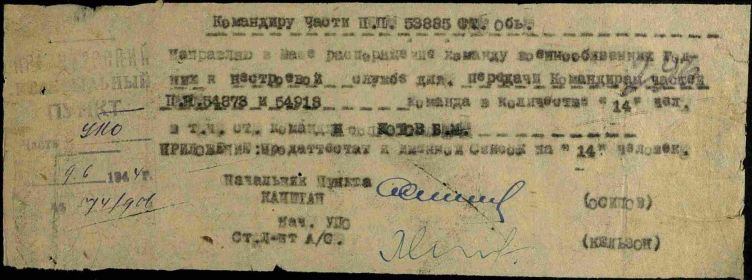 Командиру части П.П. 53885 ст. Обь.
Направляю в Ваше распоряжение команду военнообязанных год-
ных к нестроевой службе для передачи Командирам частей
П.П. 54873 и 54918 команда в количестве "14" чел.
в т.ч. ст. команды КОТОВ В.М.
ПРИЛОЖЕНИЕ: Продаттестат и именной список на "14" человек.
ПУНКТ
УПО
9.6 1944 г.
№ 574/906
Начальник Пункта
КАПИТАН (ОСИПОВ)
Нач. УПО
Ст. Л-нт А/С. (КЕЛЬЗОН)